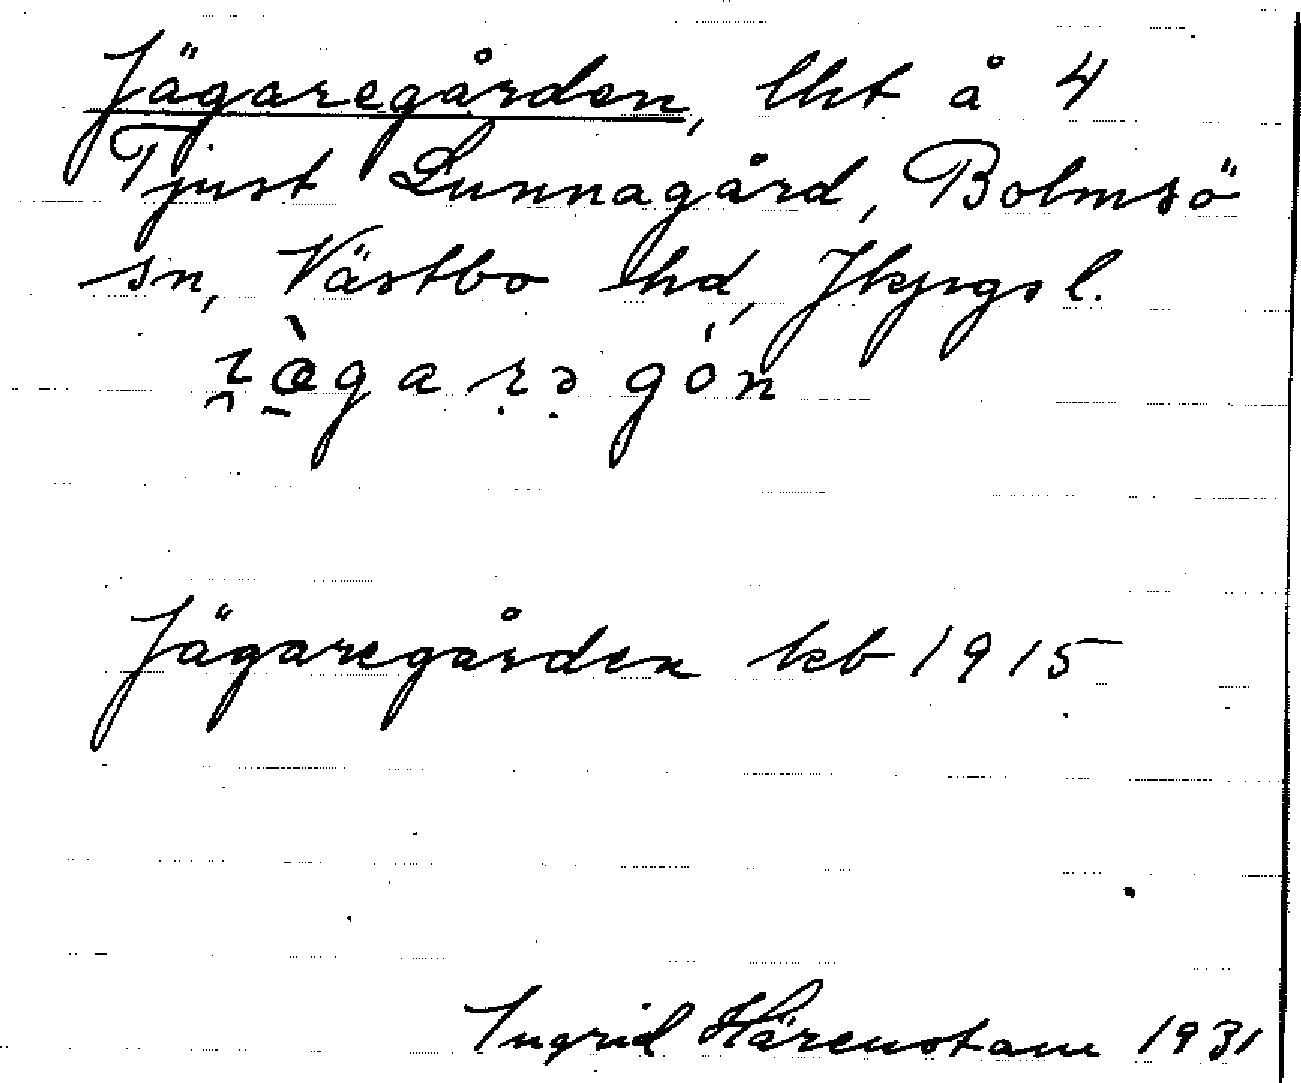 Jägaregården, lht å 4
Tjust Lunnagård, Bolmsö
sn, Västbo hd, Jkpgs l.
Jägaregården kb 1915
Ingrid Härenstam 1931